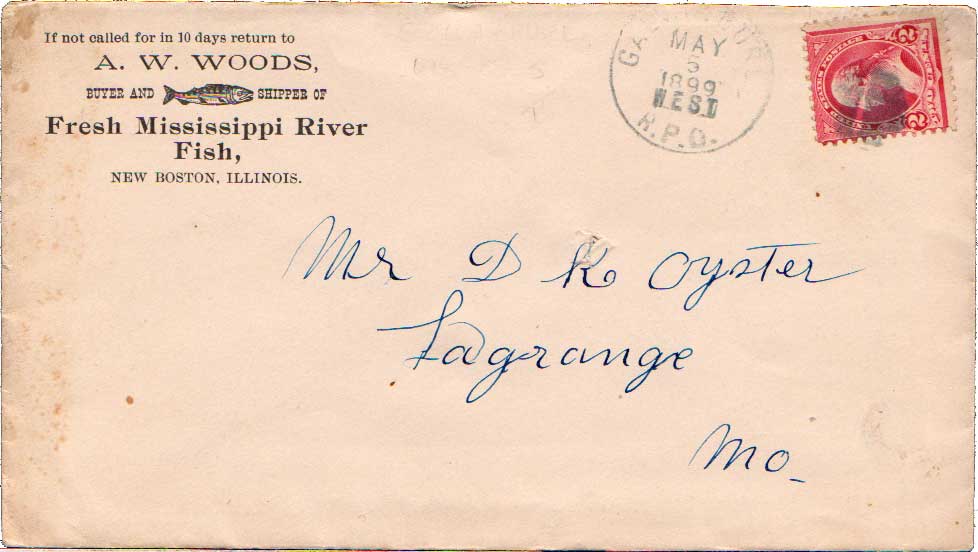 If not called for in 10 days return to
A. W. WOODS,
BUYER AND SHIPPER OF
Fresh Mississippi River
Fish,
NEW BOSTON, ILLINOIS.
MAY
3
1899
WEST
R.P.O.
2 2
Mr D K Oyster
Lagrange
Mo